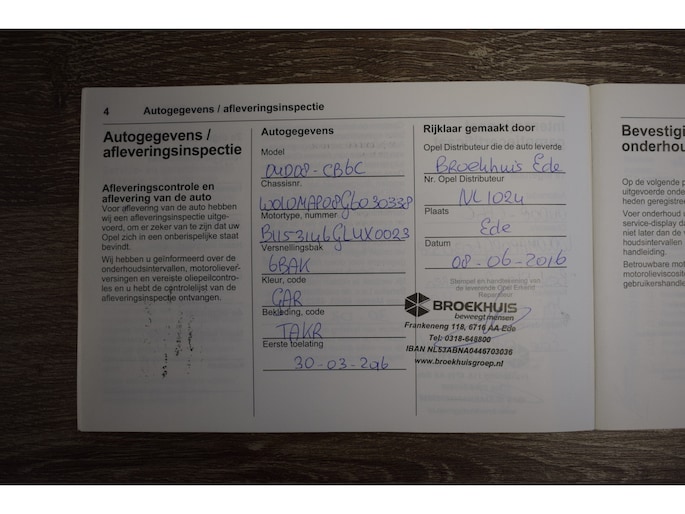 4 Autogegevens / afleveringsinspectie
Autogegevens /
afleveringsinspectie
Afleveringscontrole en
aflevering van de auto
Voor aflevering van de auto hebben
wij een afleveringsinspectie uitge-
voerd, om er zeker van te zijn dat uw
Opel zich in een onberispelijke staat
bevindt.
Wij hebben u geïnformeerd over de
onderhoudsintervallen, motorolie­ver-
versingen en vereiste oliepeilcontro-
les en u hebt de controlelijst van de
afleveringsinspectie ontvangen.
Autogegevens
Model
Chassisnr.
Motortype, nummer
Versnellingsbak
6BAK
Kleur, code
GAR
Bekleding, code
TAKR
Eerste toelating
30-03-2016
Rijklaar gemaakt door
Opel Distributeur die de auto leverde
Broekhuis Ede
Nr. Opel Distributeur
NL1024
Plaats
Ede
Datum
08-06-2016
Stempel en handtekening van
de leverende Opel Erkend
Reparateur
BROEKHUIS
beweegt mensen
Frankeneng 118, 6716 AA Ede
Tel: 0318-648800
IBAN NL53ABNA0446703036
www.broekhuisgroep.nl
Bevestigi
onderhou
Op de volgende p
uitgevoerde onde
heden geregistree
Voer onderhoud u
service-display da
niet later dan de v
houdsintervallen
handleiding.
Betrouwbare mot
motorolieviscosit
gebruikershandle